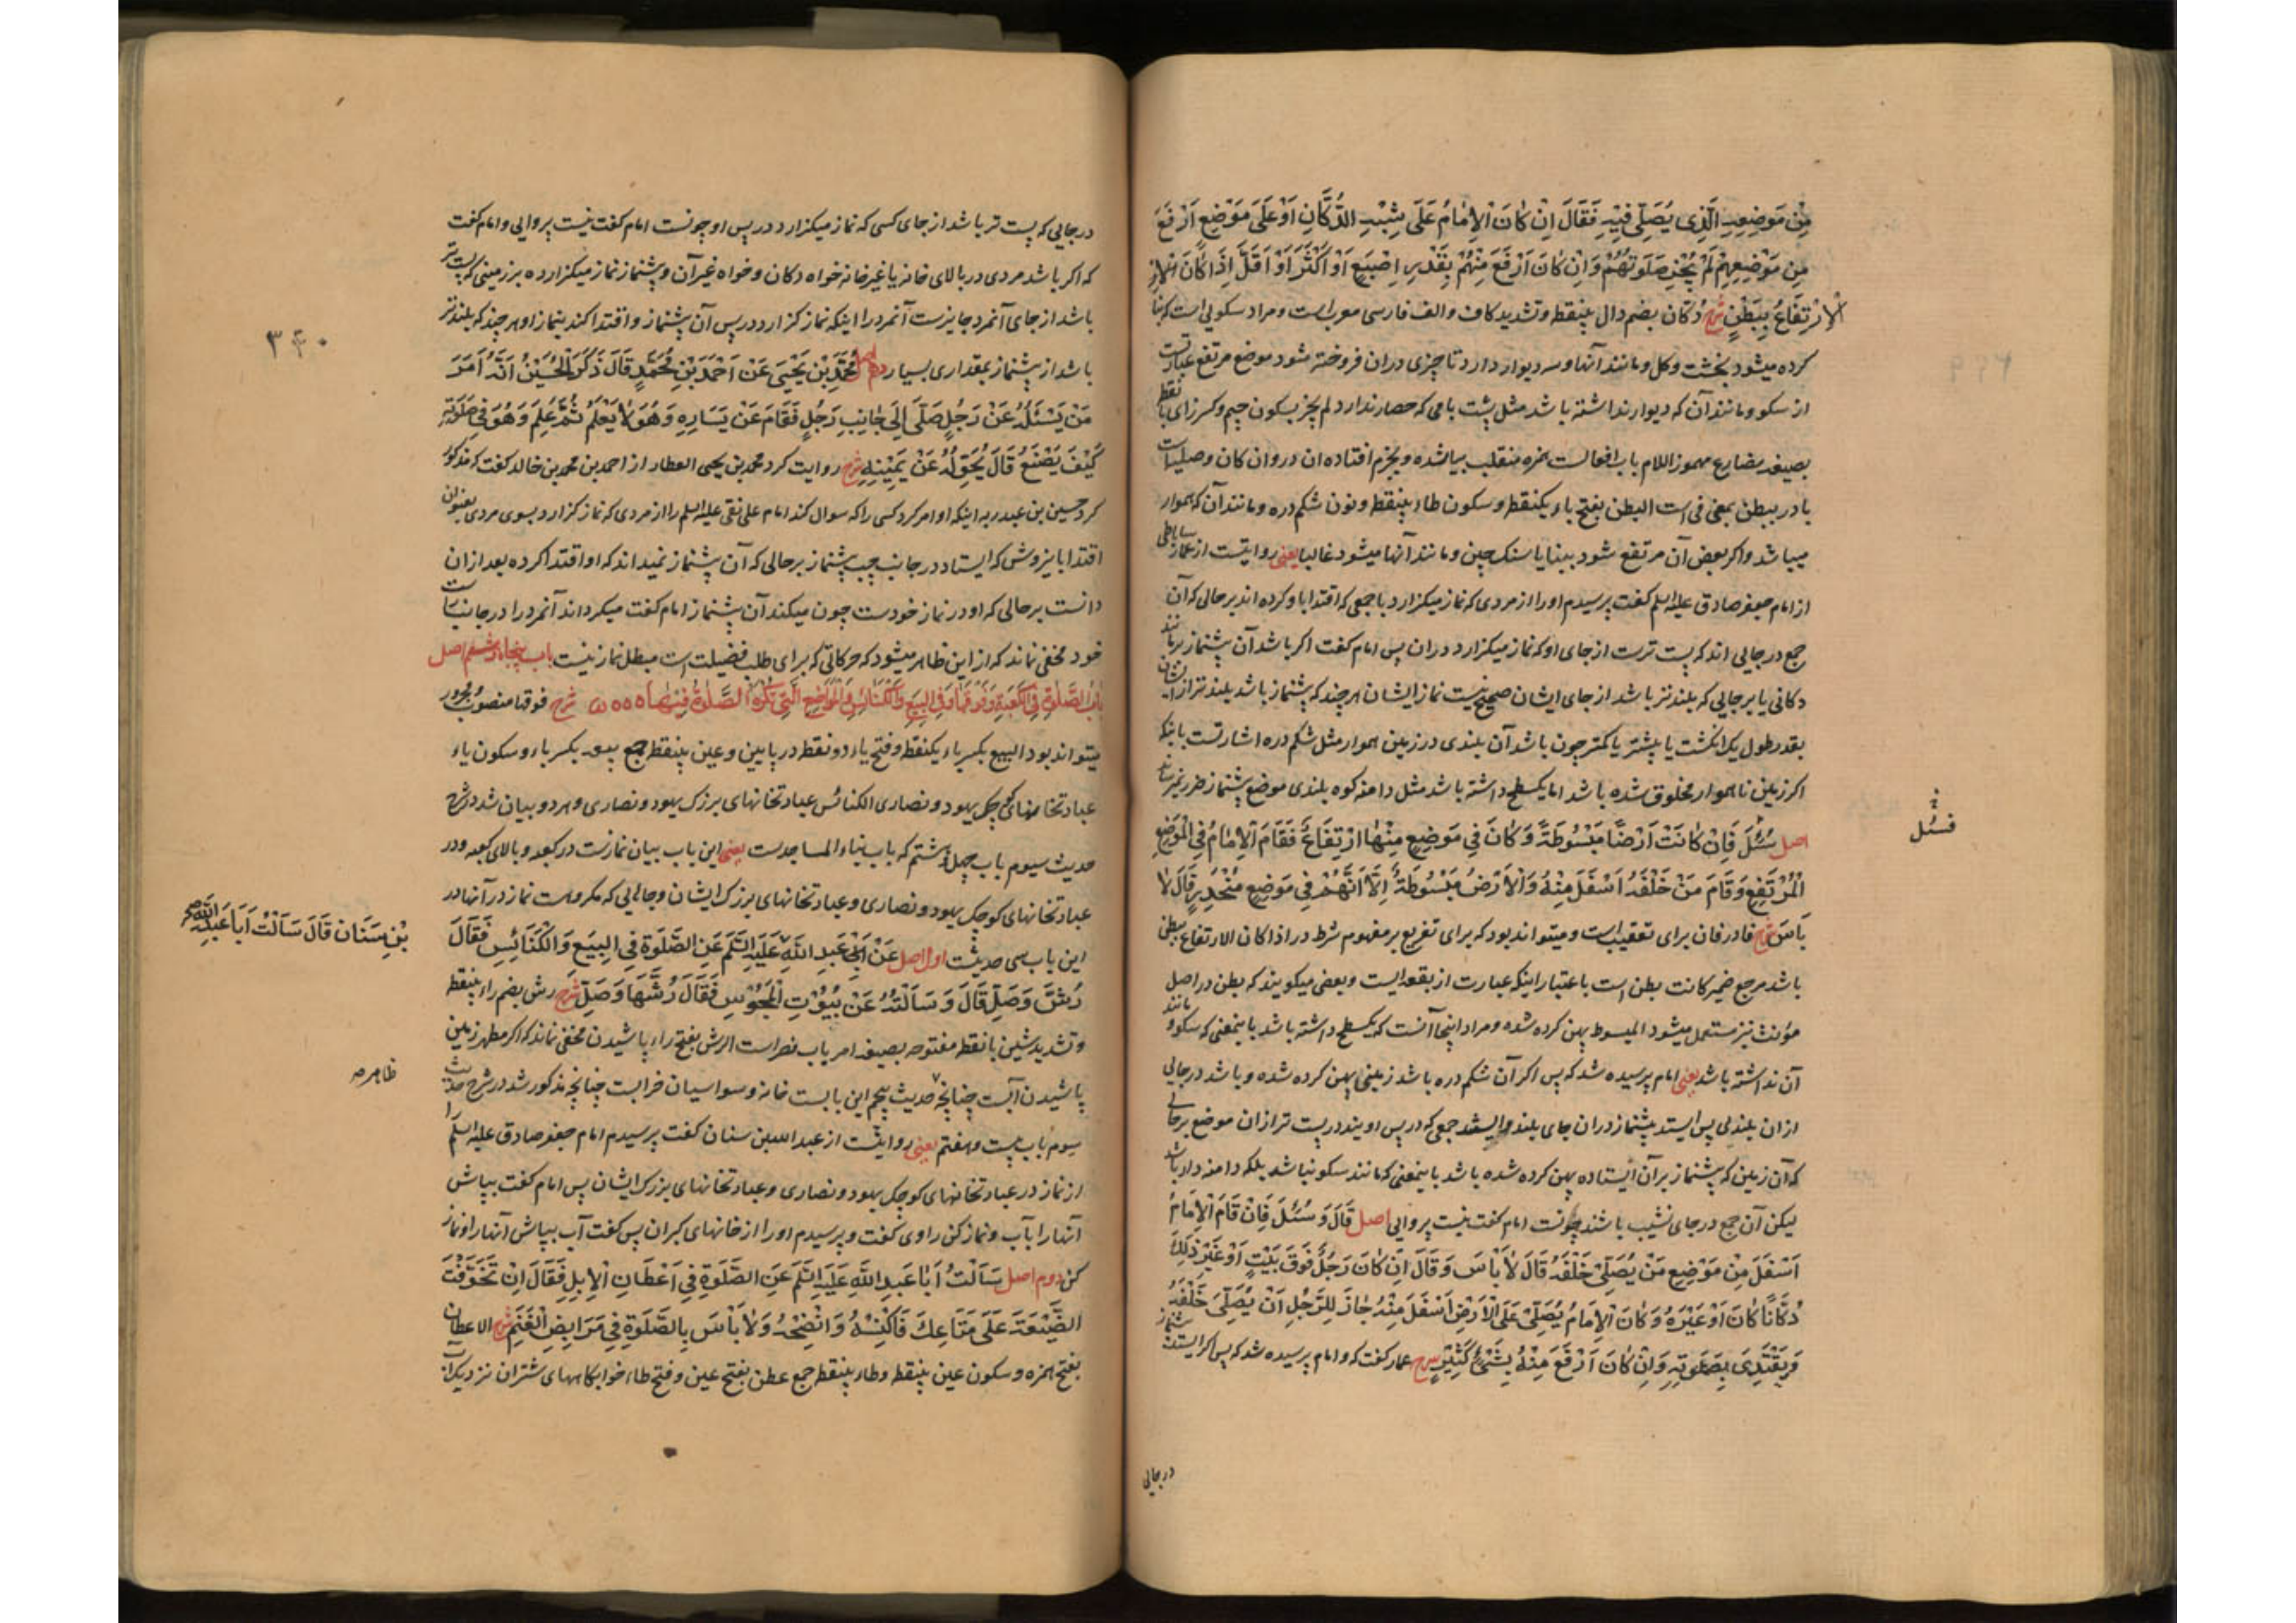 مِنْ مَوْضِعِهِ الَّذِی یُصَلِّی فِیهِ فَقَالَ اِنْ کَانَ الْاِمَامُ عَلَی شِبْهِ الدُّکَّانِ اَوْ عَلَی مَوْضِعٍ اَرْفَعَ
مِنْ مَوْضِعِهِمْ لَمْ یُجْزِ صَلَوتُهُمْ وَاِنْ کَانَ اَرْفَعَ مِنْهُمْ بِقَدْرِ اِصْبَعٍ اَوْ اَکْثَرَ اَوْ اَقَلَّ اِذَا کَانَ
الْاِرْتِفَاعُ بِبَطْنٍ شرح دکان بضم دال بینقطه وتشدید کاف والف فارسی معربست ومراد سکویی است که بنا
کرده میشود بخشت وکل ومانند آنها وسه دیوار دارد تا چیزی دران فروخته شود موضع مرتفع عبارتست
از سکو ومانند آن که دیوار نداشته باشد مثل پشت بامی که حصار ندارد لم یجز بسکون جیم وکسر زای بانقطه
بصیغه مضارع مهموز اللام باب افعالست همزه منقلب بیا شده وبجزم افتاده ان در وان کان وصلیه است
با در ببطن بمعنی فی است البطن بفتح باء یکنقطه وسکون طاء بینقطه ونون شکم دره ومانند آن که هموار
میباشد واکر بعض آن مرتفع شود ببنا یا سنک چین ومانند آنها میشود غالبا یعنی روایتست از عمار ساباطی
از امام جعفر صادق علیه السلم کفت پرسیدم اورا از مردی که نماز میکزارد با جمعی که اقتدا باو کرده اند بر حالی که آن
جمع در جایی اند که پست ترست از جای او که نماز میکزارد دران پس امام کفت اکر باشد آن پیشنماز بر مانند
دکانی یا بر جایی که بلندتر باشد از جای ایشان صحیح نیست نماز ایشان هر چند که پیشنماز باشد بلندتر از ایشان
بقدر طول یک انکشت یا بیشتر یا کمتر چون باشد آن بلندی در زمین هموار مثل شکم دره اشارتست باینکه
اکر زمین ناهموار مخلوق شده باشد اما یکسطح داشته باشد مثل دامنه کوه بلندی موضع پیشنماز ضرر نمیرساند
اصل سُئِلَ فَاِنْ کَانَتْ اَرْضًا مَبْسُوطَةً وَکَانَ فِی مَوْضِعٍ مِنْهَا ارْتِفَاعٌ فَقَامَ الْاِمَامُ فِی الْمَوْضِعِ
الْمُرْتَفِعِ وَقَامَ مَنْ خَلْفَهُ اَسْفَلَ مِنْهُ وَالْاَرْضُ مَبْسُوطَةٌ اِلَّا اَنَّهُمْ فِی مَوْضِعٍ مُنْحَدِرٍ قَالَ لَا
بَأْسَ شرح فا در فان برای تعقیب است ومیتواند بود که برای تفریع بر مفهوم شرط در اذا کان الارتفاع ببطن
باشد مرجع ضمیر کانت بطن است باعتبار اینکه عبارت از بقعه ایست وبعضی میکویند که بطن در اصل
مؤنث نیز مستعمل میشود المبسوط پهن کرده شده ومراد اینجا آنست که یکسطح داشته باشد باینمعنی که سکو ومانند
آن نداشته باشد یعنی امام پرسیده شد که پس اکر آن شکم دره باشد زمینی پهن کرده شده وباشد در جایی
ازان بلندیی پس ایستد پیشنماز دران جای بلند وایستد جمعی که در پس اویند در پست تر ازان موضع بر حالی
که آن زمین که پیشنماز برآن ایستاده پهن کرده شده باشد باینمعنی که مانند سکو نباشد بلکه دامنه دار باشد
لیکن آن جمع در جای نشیب باشند چونست امام کفت نیست پروایی اصل قَالَ وَسُئِلَ فَاِنْ قَامَ الْاِمَامُ
اَسْفَلَ مِنْ مَوْضِعِ مَنْ یُصَلِّی خَلْفَهُ قَالَ لَا بَأْسَ وَقَالَ اِنْ کَانَ رَجُلٌ فَوْقَ بَیْتٍ اَوْ غَیْرِ ذَلِکَ
دُکَّانًا کَانَ اَوْ غَیْرَهُ وَکَانَ الْاِمَامُ یُصَلِّی عَلَی الْاَرْضِ اَسْفَلَ مِنْهُ جَازَ لِلرَّجُلِ اَنْ یُصَلِّیَ خَلْفَهُ
وَیَقْتَدِیَ بِصَلَوتِهِ وَاِنْ کَانَ اَرْفَعَ مِنْهُ بِشَیْءٍ کَثِیرٍ شرح عمار کفت که وامام پرسیده شد که پس اکر ایستد پیشنماز
در جایی
فسئل
در جایی که پست تر باشد از جای کسی که نماز میکزارد در پس او چونست امام کفت نیست پروایی وامام کفت
که اکر باشد مردی در بالای خانه یا غیر خانه خواه دکان وخواه غیر آن وپیشنماز نماز میکزارده بر زمینی که پست تر
باشد از جای آنمرد جایزست آنمرد را اینکه نماز کزارد در پس آن پیشنماز واقتدا کند بنماز او هر چند که بلندتر
باشد از پیشنماز بمقداری بسیار دهم اصل مُحَمَّدُ بْنُ یَحْیَی عَنْ اَحْمَدَ بْنِ مُحَمَّدٍ قَالَ ذَکَرَ الْحُسَیْنُ اَنَّهُ اَمَرَ
مَنْ یَسْئَلُهُ عَنْ رَجُلٍ صَلَّی اِلَی جَانِبِ رَجُلٍ فَقَامَ عَنْ یَسَارِهِ وَهُوَ لَا یَعْلَمُ ثُمَّ عَلِمَ وَهُوَ فِی صَلَوتِهِ
کَیْفَ یَصْنَعُ قَالَ یُحَوِّلُهُ عَنْ یَمِینِهِ شرح روایت کرد محمد بن یحیی العطار از احمد بن محمد بن خالد کفت که مذکور
کرد حسین بن عبد ربه اینکه او امر کرد کسی را که سوال کند امام علی نقی علیه السلم را از مردی که نماز کزارد بسوی مردی بعنوان
اقتدا باین روش که ایستاد در جانب چپ پیشنماز بر حالی که آن پیشنماز نمیداند که او اقتدا کرده بعد ازان
دانست بر حالی که او در نماز خودست چون میکند آن پیشنماز امام کفت میکرداند آنمرد را در جانب راست
خود مخفی نماند که از این ظاهر میشود که حرکاتی که برای طلب فضیلت است مبطل نماز نیست باب پنجاه وششم اصل
بَابُ الصَّلٰوةِ فِی الْکَعْبَةِ وَفَوْقَهَا وَفِی الْبِیَعِ وَالْکَنَائِسِ وَالْمَوَاضِعِ الَّتِی تُکْرَهُ الصَّلٰوةُ فِیهَا شرح فوقها منصوب ومجرور
میتواند بود البیع بکسر باء یکنقطه وفتح یاء دو نقطه در پایین وعین بینقطه جمع بیعه بکسر باء وسکون یاء
عبادتخانهای کوچک یهود ونصاری الکنائس عبادتخانهای بزرک یهود ونصاری وهر دو بیان شد در شرح
حدیث سیوم باب چهل وهشتم که باب بناء المساجدست یعنی این باب بیان نمازست در کعبه وبالای کعبه ودر
عبادتخانهای کوچک یهود ونصاری وعبادتخانهای بزرک ایشان وجاهایی که مکروهست نماز در آنها در
این باب سی حدیثست اول اصل عَنْ اَبِی عَبْدِ اللّٰهِ عَلَیْهِ السَّلَمُ عَنِ الصَّلَوةِ فِی الْبِیَعِ وَالْکَنَائِسِ فَقَالَ
رُشَّ وَصَلِّ قَالَ وَسَأَلْتُهُ عَنْ بُیُوتِ الْمَجُوسِ فَقَالَ رُشَّهَا وَصَلِّ شرح رش بضم راء بینقطه
وتشدید شین بانقطه مفتوحه بصیغه امر باب نصر است الرش بفتح راء پاشیدن مخفی نماند که اکر مطهر زمین
پاشیدن آبست چنانچه حدیث پنجم این بابست خانه وسواسیان خرابست چنانچه مذکور شد در شرح حدیث
سیوم باب بیست وهفتم یعنی روایتست از عبد الله بن سنان کفت پرسیدم امام جعفر صادق علیه السلم را
از نماز در عبادتخانهای کوچک یهود ونصاری وعبادتخانهای بزرک ایشان پس امام کفت بپاش
آنها را بآب ونماز کن راوی کفت وپرسیدم اورا از خانهای کبران پس کفت آب بپاش آنها را ونماز
کن دوم اصل سَأَلْتُ اَبَا عَبْدِ اللّٰهِ عَلَیْهِ السَّلَمُ عَنِ الصَّلَوةِ فِی اَعْطَانِ الْاِبِلِ فَقَالَ اِنْ تَخَوَّفْتَ
الضَّیْعَةَ عَلَی مَتَاعِکَ فَاکْنُسْهُ وَانْضِحْهُ وَلَا بَأْسَ بِالصَّلَوةِ فِی مَرَابِضِ الْغَنَمِ شرح الاعطان
بفتح همزه وسکون عین بینقطه وطاء بینقطه جمع عطن بفتح عین وفتح طاء خوابکاههای شتران نزدیک آب
۳۴۰
بْنِ سَنَان قَالَ سَأَلْتُ اَبَا عَبْدِ اللّٰهِ
ظاهر